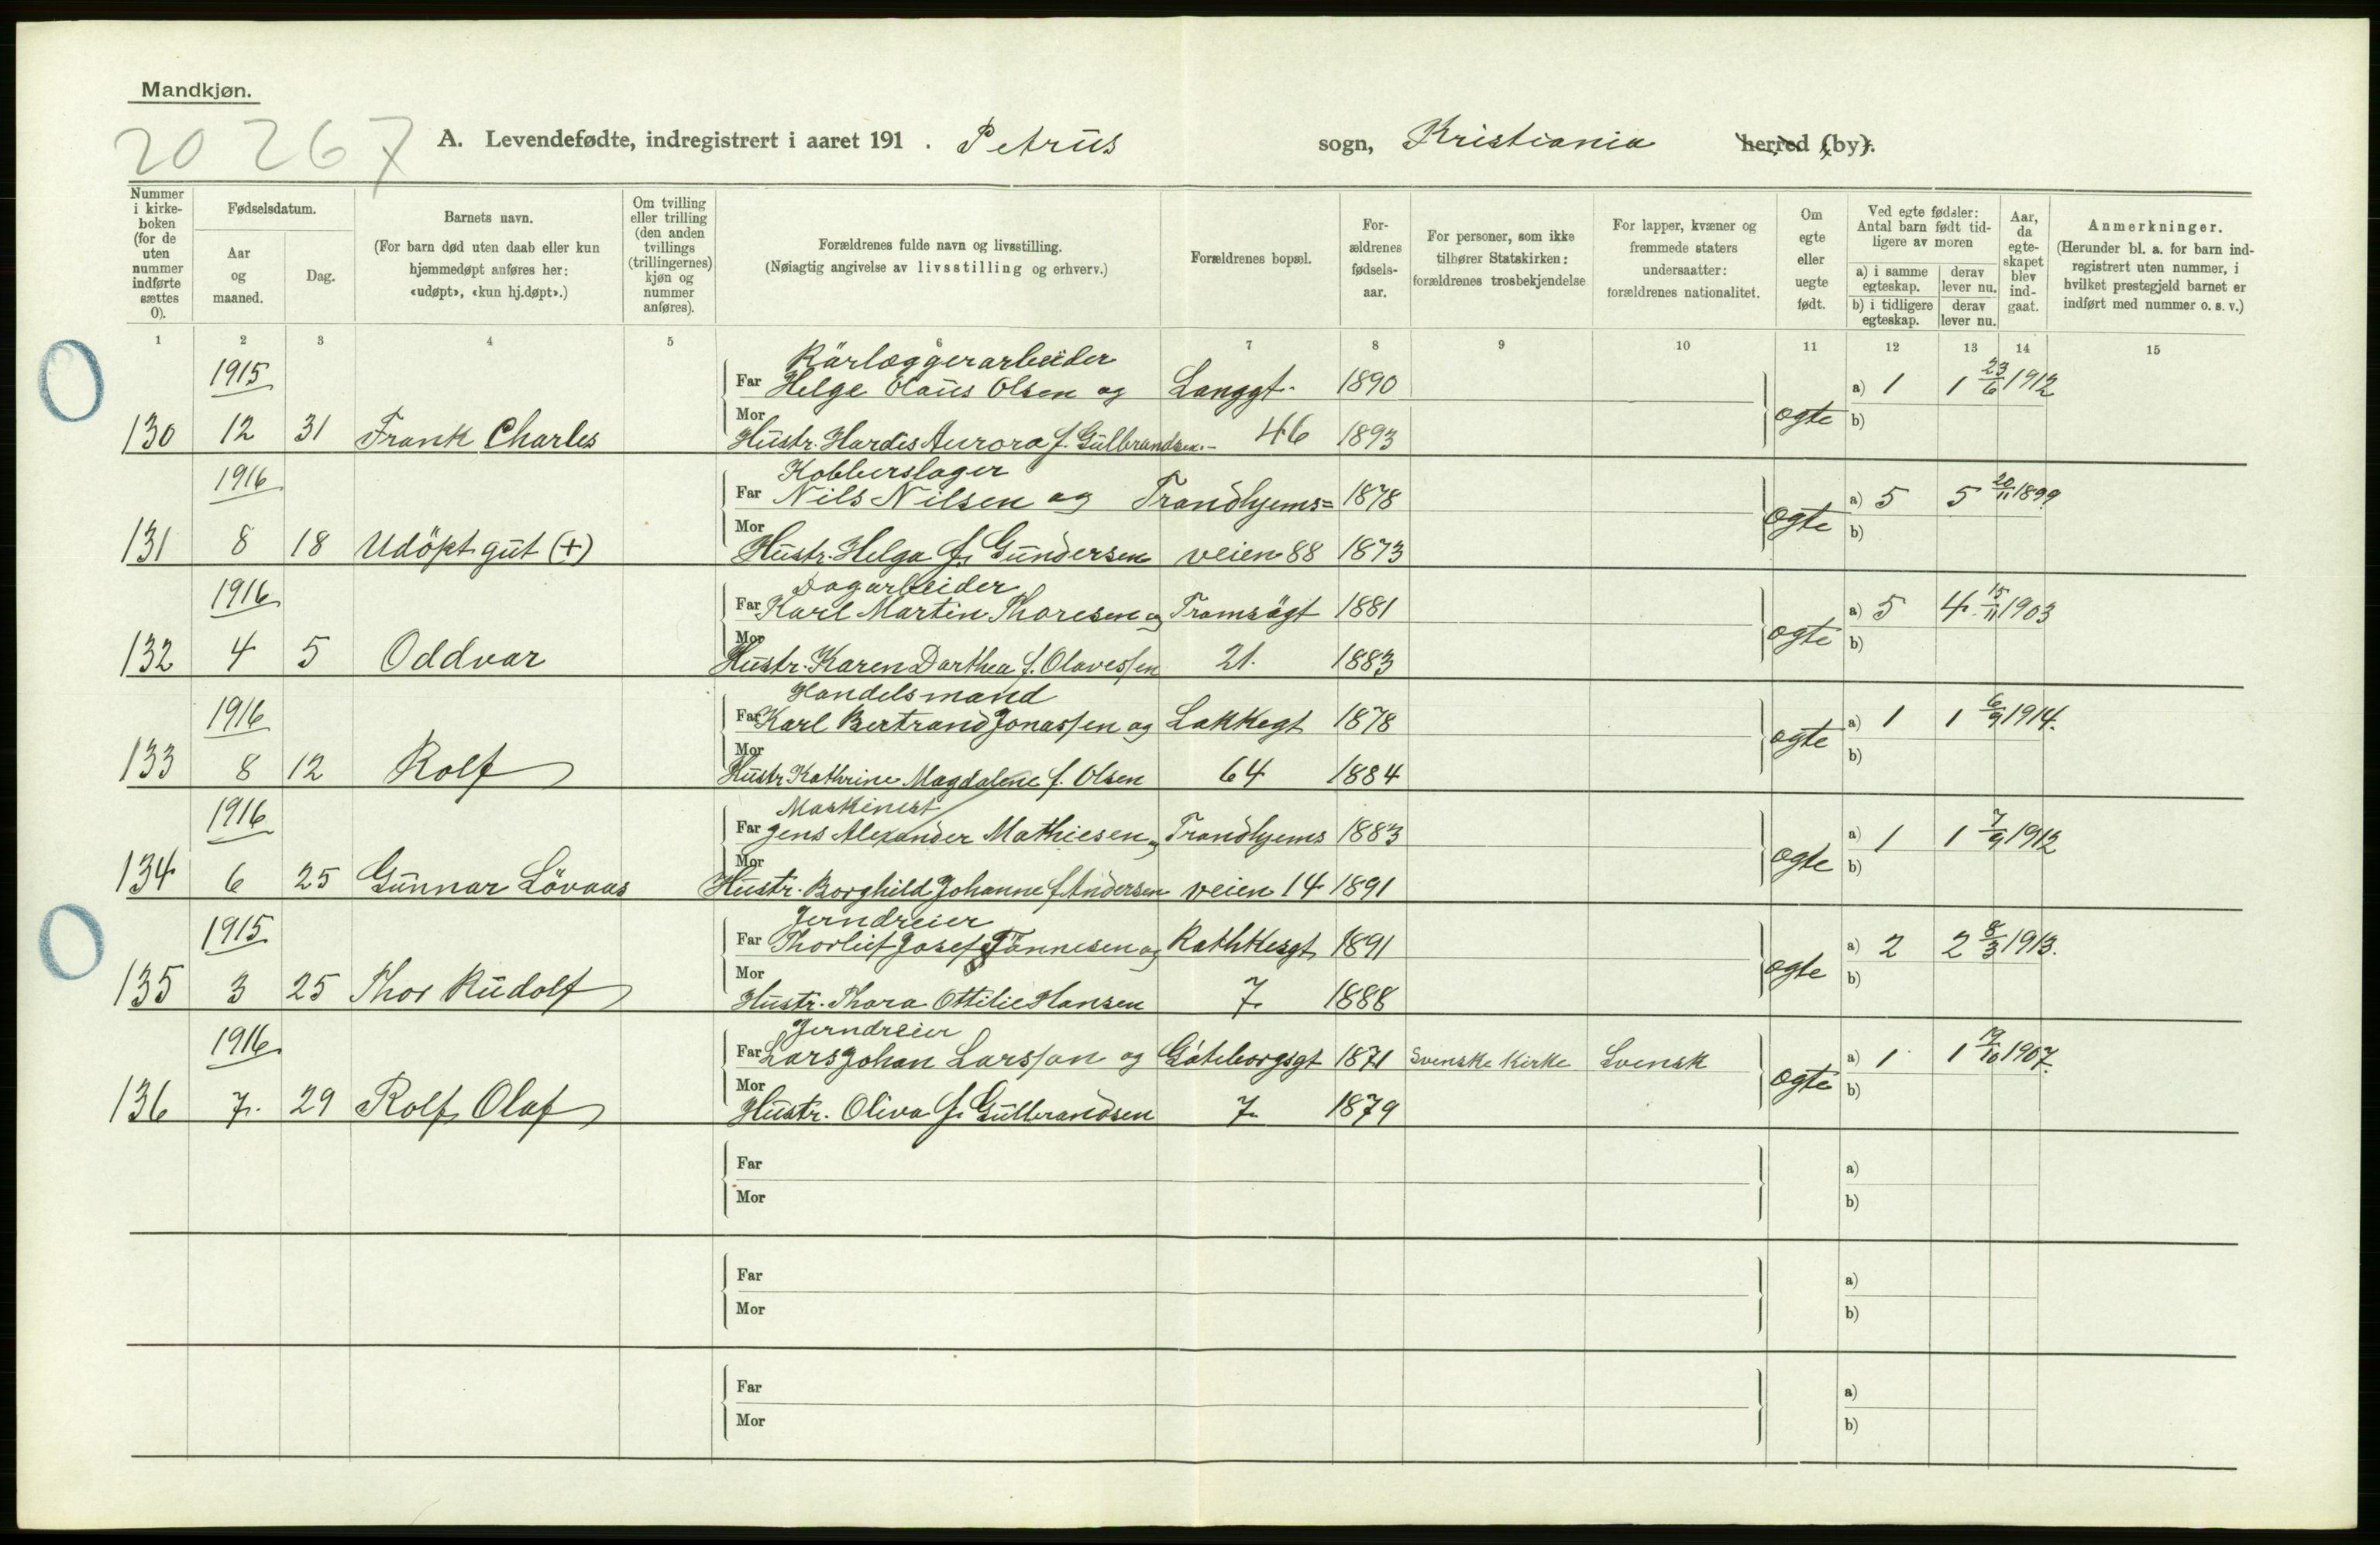 Mandkjøn.
20 267
A. Levendefødte, indregistrert i aaret 191 . Petrus sogn, Kristiania herred (by).
Nummer i kirkeboken (for de uten nummer indførte sættes 0).
Fødselsdatum.
Aar og maaned.
Dag.
Barnets navn.
(For barn død uten daab eller kun hjemmedøpt anføres her: «udøpt», «kun hj.døpt».)
Om tvilling eller trilling (den anden tvillings (trillingernes) kjøn og nummer anføres).
Forældrenes fulde navn og livsstilling.
(Nøiagtig angivelse av livsstilling og erhverv.)
Forældrenes bopæl.
For-ældrenes fødsels-aar.
For personer, som ikke tilhører Statskirken: forældrenes trosbekjendelse
For lapper, kvæner og fremmede staters undersaatter: forældrenes nationalitet.
Om egte eller uegte født.
Ved egte fødsler: Antal barn født tid-ligere av moren
a) i samme egteskap. derav lever nu.
b) i tidligere egteskap. derav lever nu.
Aar, da egte-skapet blev ind-gaat.
Anmerkninger.
(Herunder bl. a. for barn ind-registrert uten nummer, i hvilket prestegjeld barnet er indført med nummer o. s. v.)
1 2 3 4 5 6 7 8 9 10 11 12 13 14 15
Rörlæggerarbeider
1915 Far Helge Olaus Olsen og Langgt. 1890 a) 1 1 23/6 1912
130 12 31 Frank Charles Mor Hustr. Hardis Aurora f. Gulbrandsen.- 46 1893 ægte b)
Kobberslager
1916 Far Nils Nilsen og Trondhjems= 1878 a) 5 5 20/11 1899
131 8 18 Udöpt gut (+) Mor Hustr. Helga f. Gundersen veien 88 1873 ægte b)
Dagarbeider
1916 Far Karl Martin Thoresen og Tromsögt 1881 a) 5 4. 15/11 1903
132 4 5 Oddvar Mor Hustr. Karen Dorthea f. Olavessen 21. 1883 ægte b)
Handelsmand
1916 Far Karl Bertrand Jonassen og Lakkegt 1878 a) 1 1 6/9 1914.
133 8 12 Rolf Mor Hustr Kathrine Magdalene f. Olsen 64 1884 ægte b)
Maskinist
1916 Far Jens Alexander Mathiesen og Trondhjems 1883 a) 1 1 7/9 1912
134 6 25 Gunnar Lövaas Mor Hustr. Borghild Johanne f Andersen veien 14 1891 ægte b)
Jerndreier
1915 Far Thorleif Josef Tönnesen og Rathkesgt 1891 a) 2 2 8/3 1913.
135 3 25 Thor Rudolf Mor Hustr. Thora Ottilie Hansen 7. 1888 ægte b)
Jerndreier
1916 Far Lars Johan Larsson og Göteborgsgt 1871 Svenske Kirke Svensk a) 1 1 19/10 1907.
136 7. 29 Rolf Olaf Mor Hustr. Oliva f. Gulbrandsen 7. 1879 ægte b)
Far a)
Mor b)
Far a)
Mor b)
Far a)
Mor b)